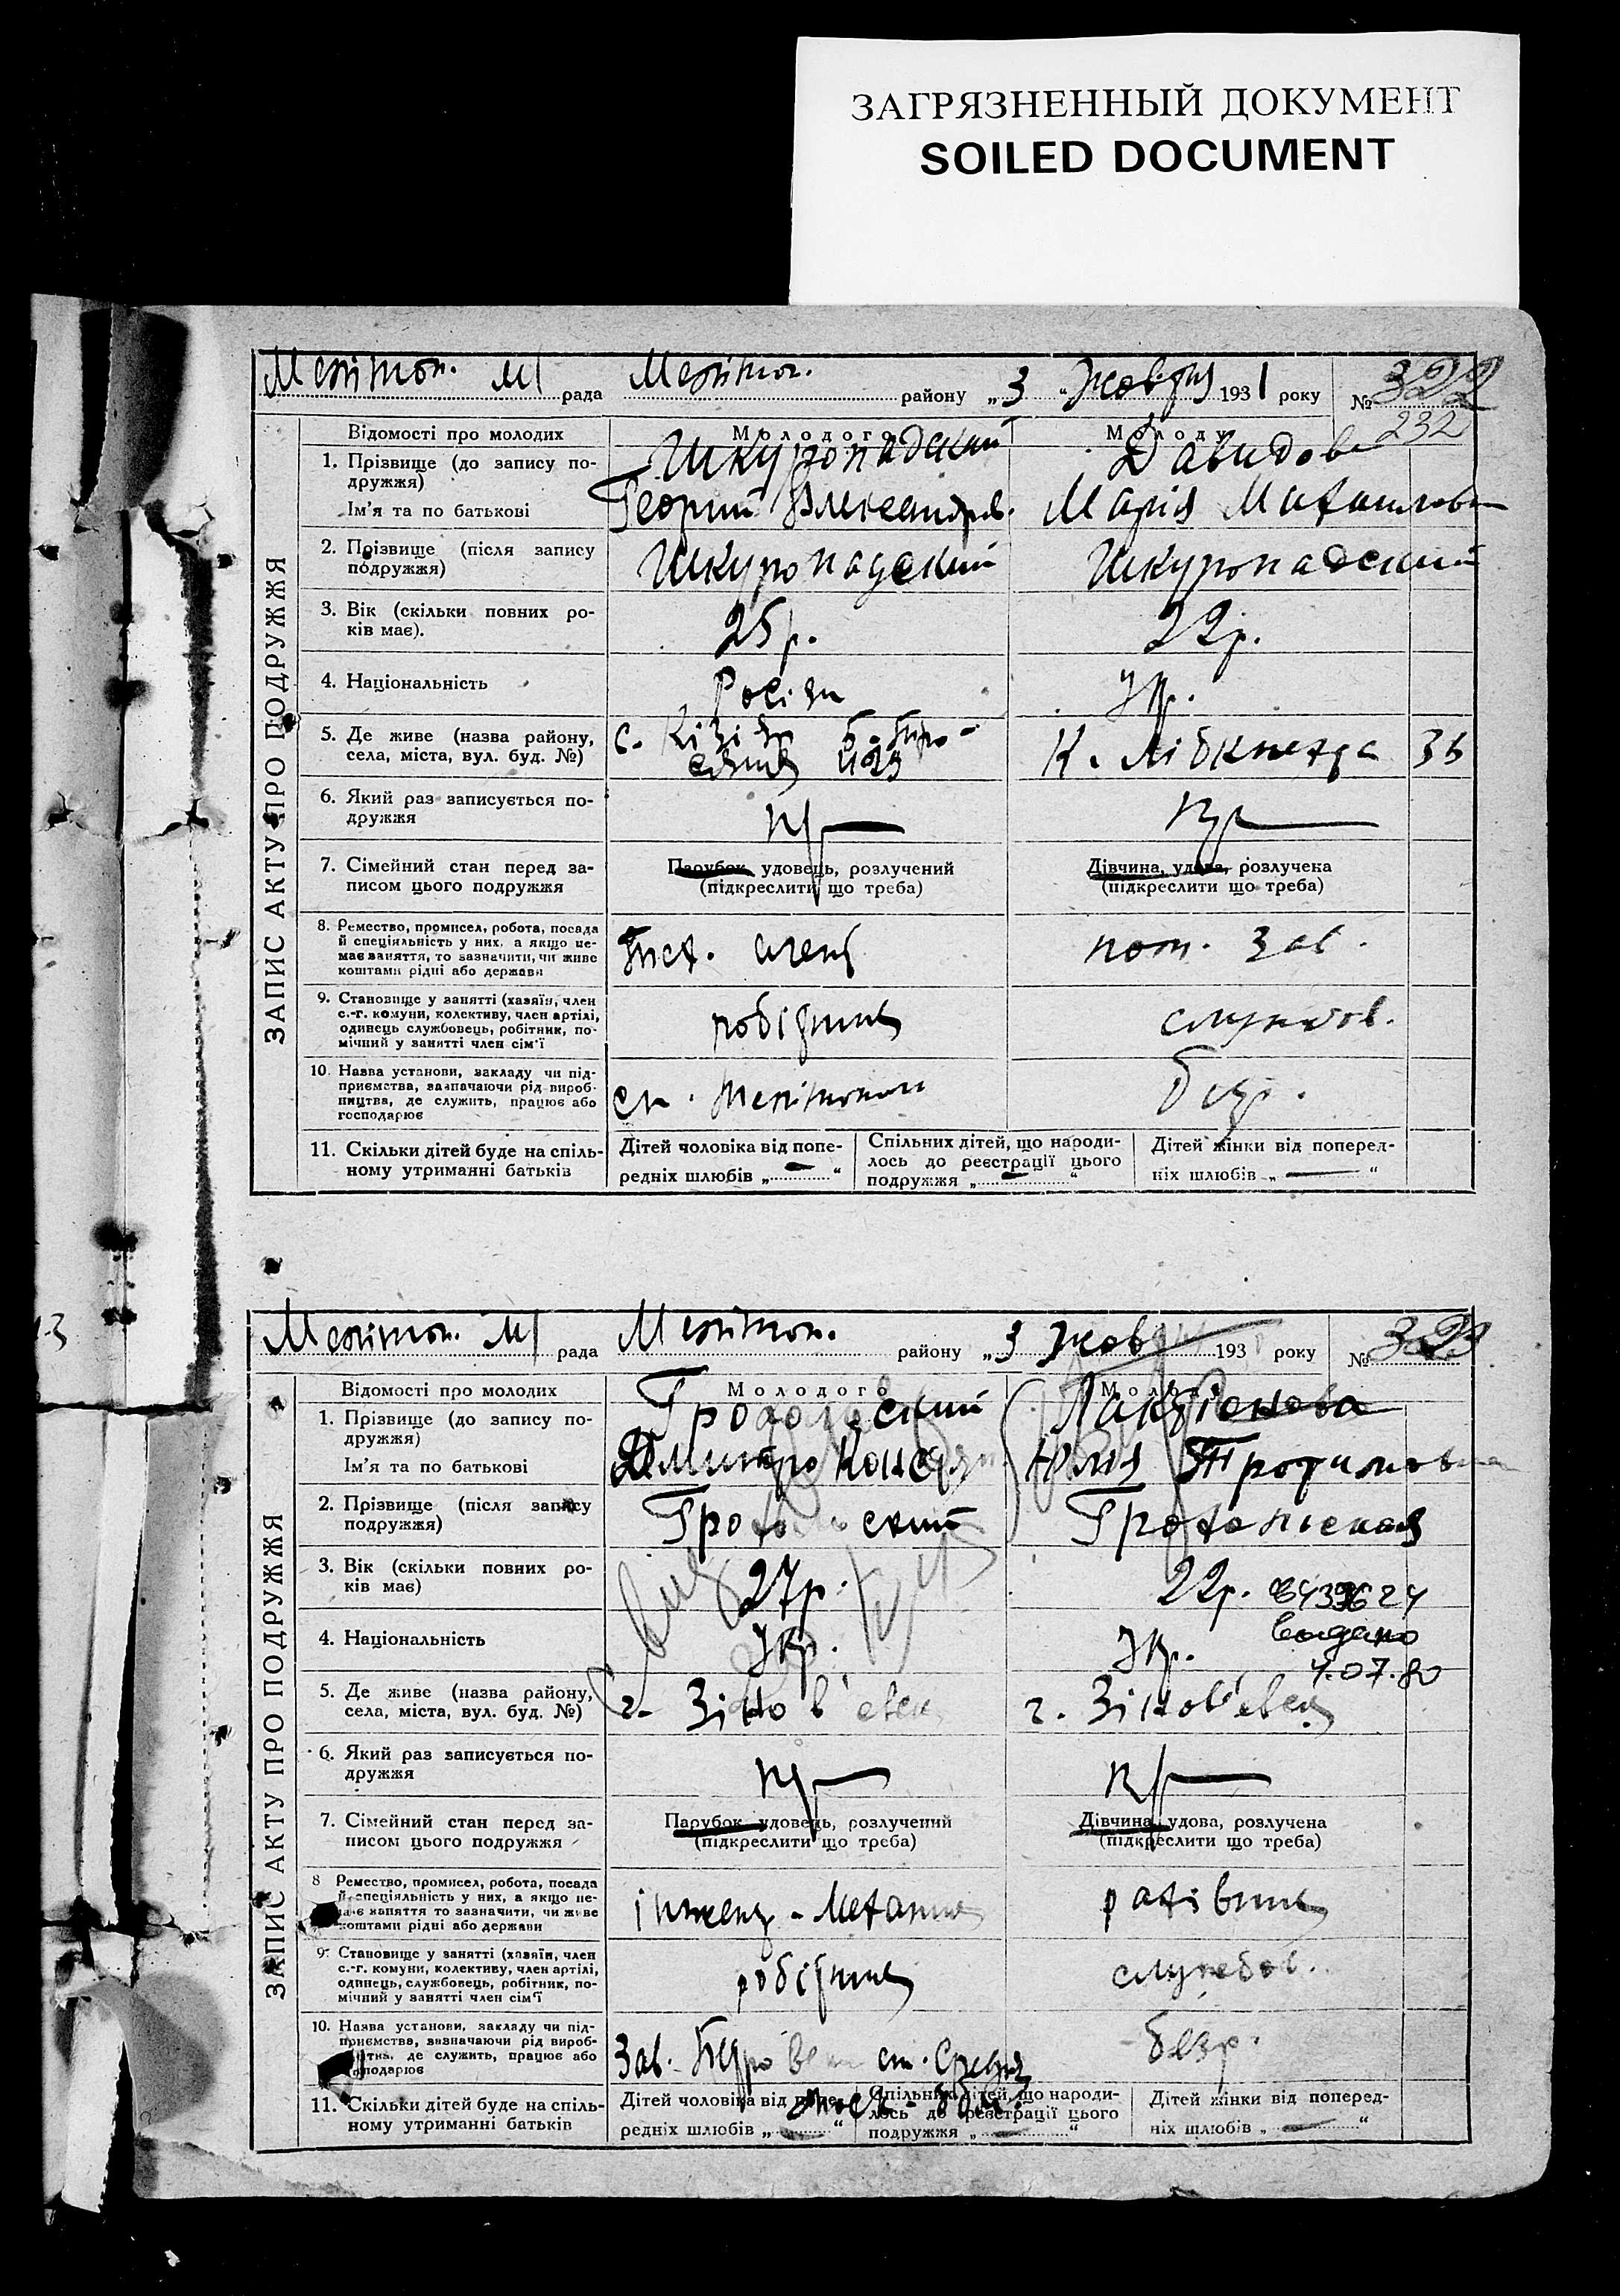 ЗАГРЯЗНЕННЫЙ ДОКУМЕНТ
SOILED DOCUMENT
Мелітоп. М/ рада Мелітоп. району „3 " Жовтня 1931 року № 322
232
ЗАПИС АКТУ ПРО ПОДРУЖЖЯ
Відомості про молодих Молодого Молоду
1. Прізвище (до запису по-
дружжя) Шкуропадский Давидова
Ім'я та по батькові Георгий Александров. Марія
2. Прізвище (після запису
подружжя) Шкуропадский Шкуропадский
3. Вік (скільки повних ро-
ків має). 25 р. 22 р.
4. Національність Росіян Укр.
5. Де живе (назва району,
села, міста, вул. буд. №) с. К. Лібкнехта 36
6. Який раз записується по-
дружжя пер пер
7. Сімейний стан перед за-
писом цього подружжя
Парубок, удовець, розлучений
(підкреслити що треба)
Дівчина, удова, розлучека
(підкреслити що треба)
8. Ремество, промисел, робота, посада
й спеціяльність у них, а якщо не-
має заняття, то зазначити, чи живе
коштами рідні або держави
агент пом. Зав.
9. Становище у занятті (хазяїн, член
с.-г. комуни, колективу, член артілі,
одинець службовець, робітник, по-
мічний у занятті член сім'ї
робітник службов.
10. Назва установи, закладу чи під-
приємства, зазначаючи рід вироб-
ництва, де служить, працює або
господарює
ст. Мелітополь безр.
11. Скільки дітей буде на спіль-
ному утриманні батьків
Дітей чоловіка від попе-
редніх шлюбів „ — "
Спільних дітей, що народи-
лось до реєстрації цього
подружжя „ — "
Дітей жінки від поперед-
ніх шлюбів „ — "
Мелітоп. М/ рада Мелітоп. району „3 Жовтня 193 року № 323
ЗАПИС АКТУ ПРО ПОДРУЖЖЯ
Відомості про молодих Молодого Молоду
1. Прізвище (до запису по-
дружжя)
Ім'я та по батькові Дмитро Юлія Трофимовна
2. Прізвище (після запису
подружжя)
3. Вік (скільки повних ро-
ків має) 27 р. 22 р.
4. Національність Укр. Укр.
Выдано
4.07.80
5. Де живе (назва району,
села, міста, вул. буд. №) г. Зінов'евск г. Зінов'евск
6. Який раз записується по-
дружжя пер пер
7. Сімейний стан перед за-
писом цього подружжя
Парубок, удовець, розлучений
(підкреслити що треба)
Дівчина, удова, розлучена
(підкреслити що треба)
8 Ремество, промисел, робота, посада
й спеціяльність у них, а якщо не-
має заняття то зазначити, чи живе
коштами рідні або держави
інженер - механик рахівник
9. Становище у занятті (хазяїн, член
с.-г. комуни, колективу, член артілі,
одинець, службовець, робітник, по-
мічний у занятті член сім'ї
робітник службов.
10. Назва установи, закладу чи під-
приємства, зазначаючи рід вироб-
ництва, де служить, працює або
господарює
Зав. ст. безр.
11. Скільки дітей буде на спіль-
ному утриманні батьків
Дітей чоловіка від попе-
редніх шлюбів „ — "
Спільних дітей, що народи-
лось до реєстрації цього
подружжя „ — "
Дітей жінки від поперед-
ніх шлюбів „ — "